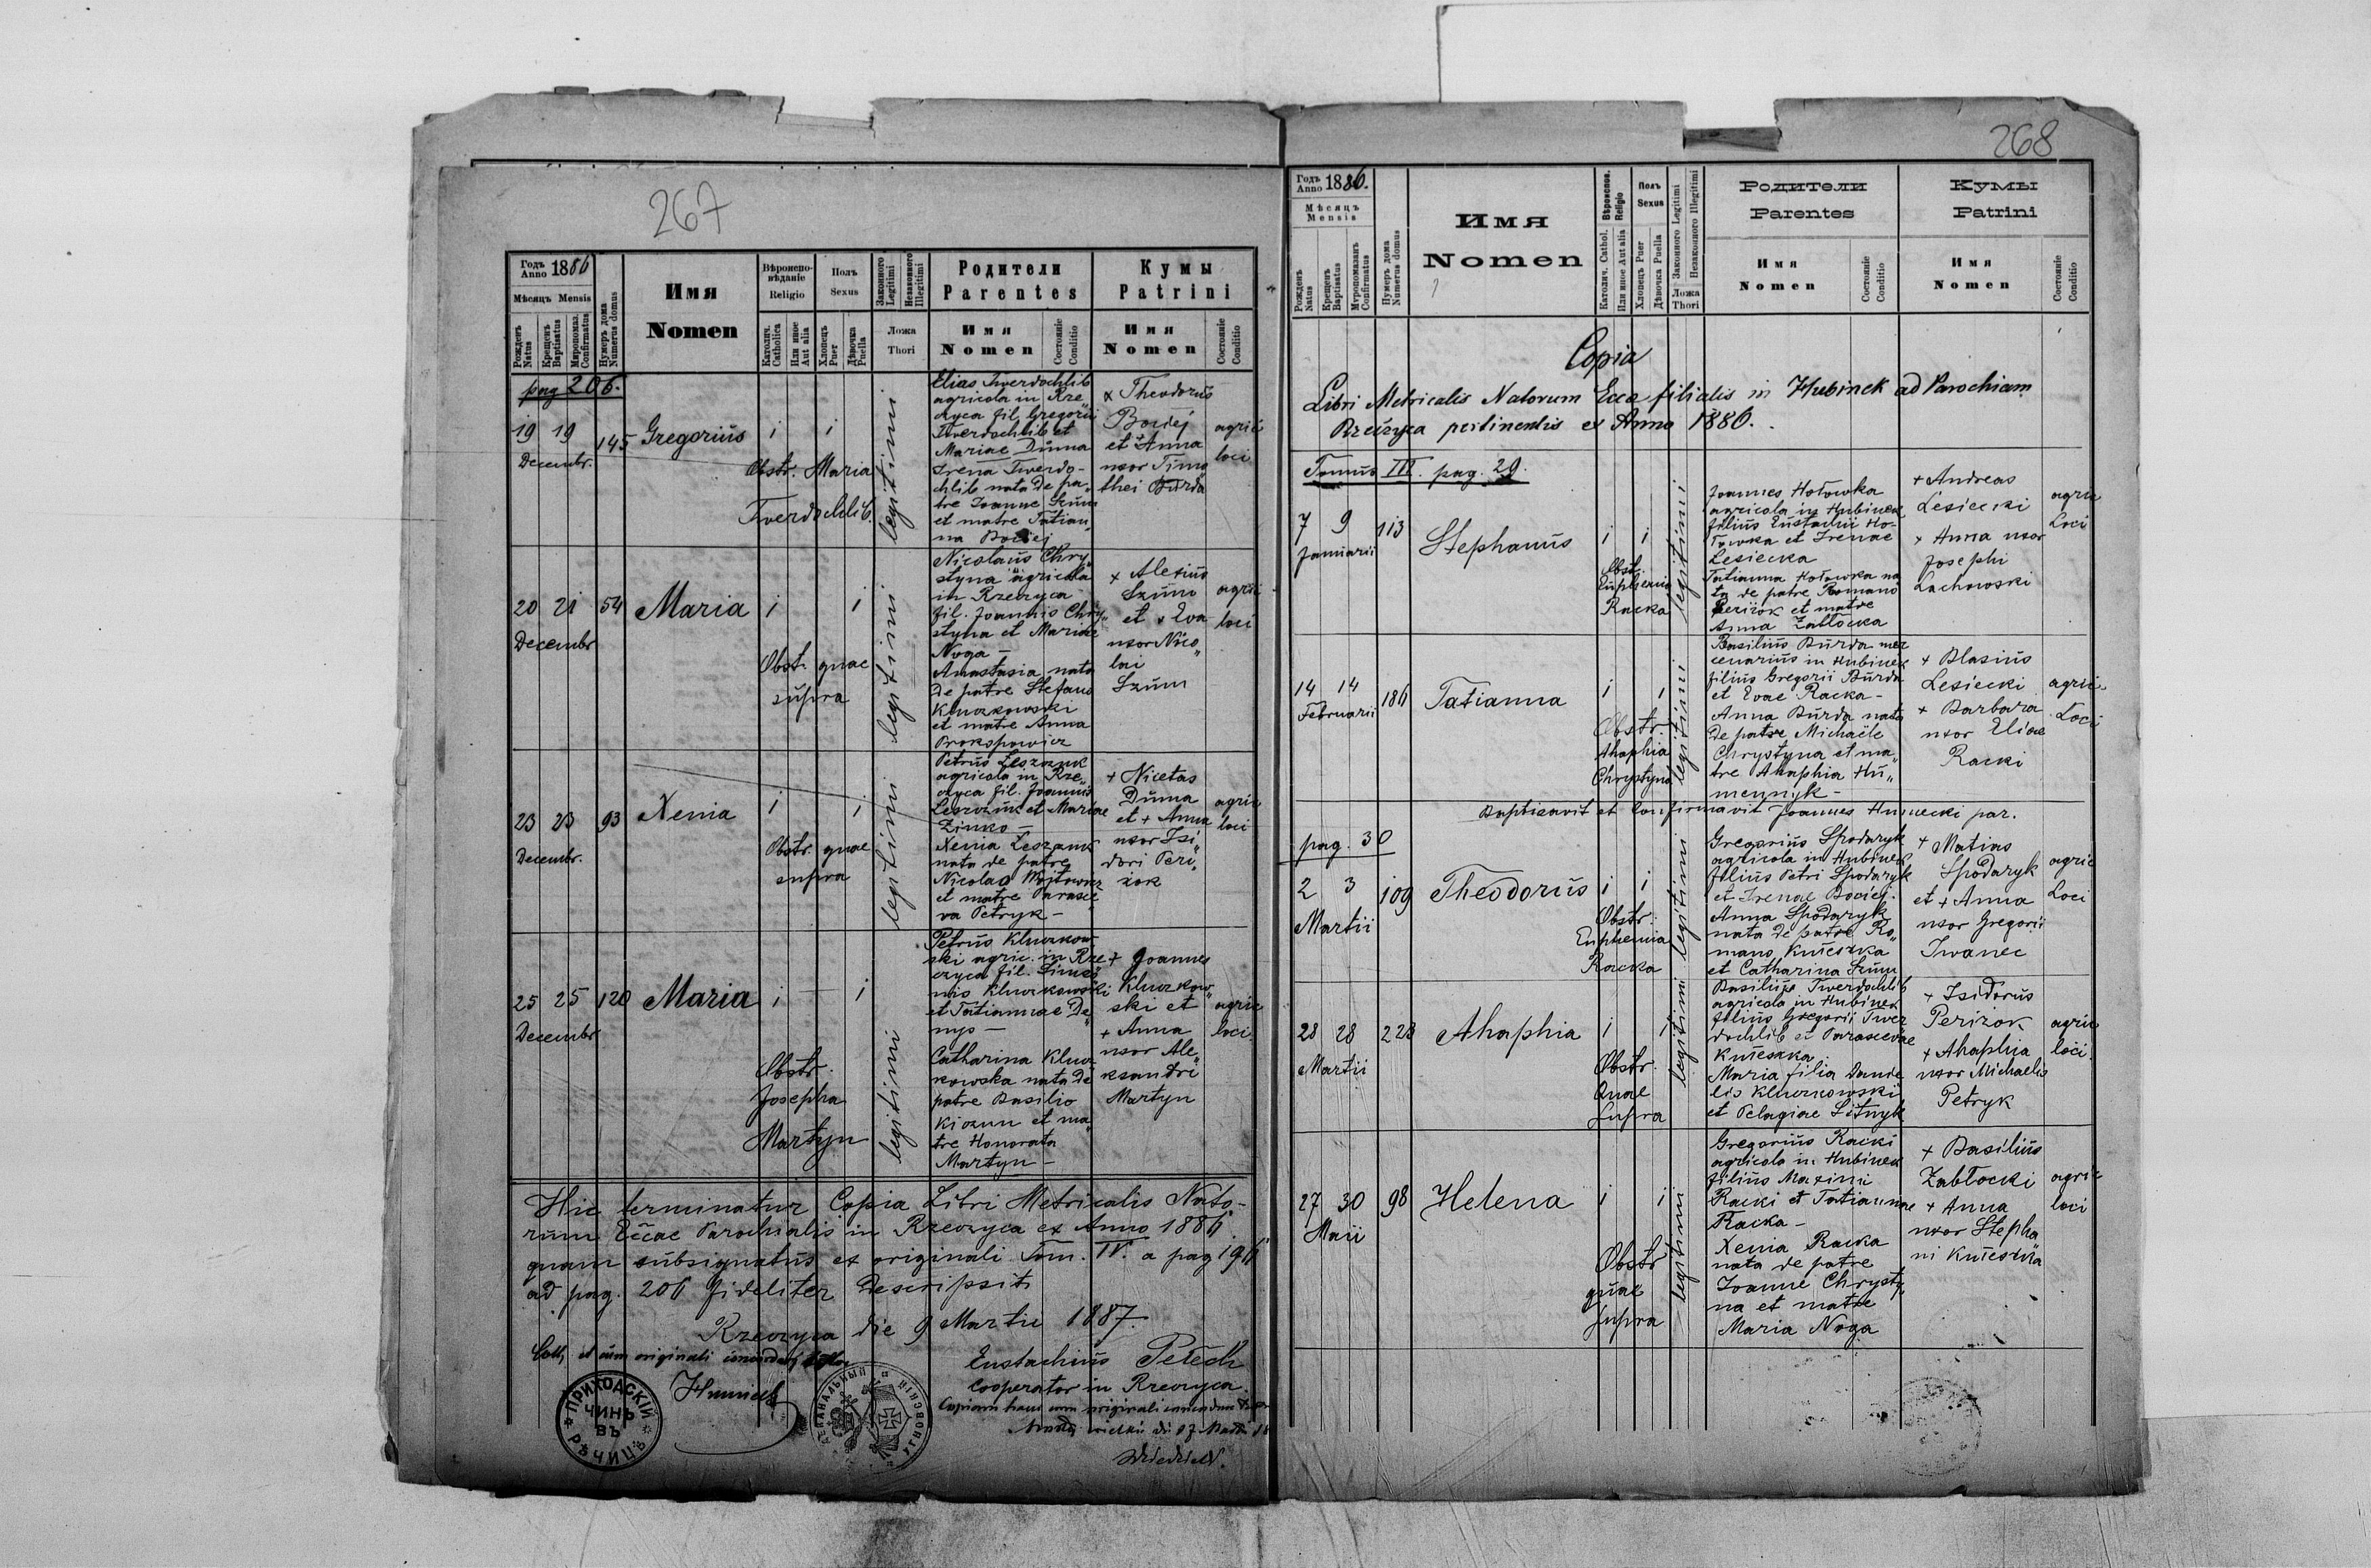 267
Годъ Anno 1886
Мѣсяцъ Mensis
Рожденъ Natus
Крещенъ Baptisatus
Миропомаз. Confirmatus
Нумеръ дома Numerus domus
Имя
Nomen
Вѣроисповѣданіе
Religio
Католич. Catholica
Или иное Aut alia
Полъ
Sexus
Хлопецъ Puer
Дѣвочка Puella
Законного Legitimi
Незаконного Illegitimi
Ложа
Thori
Родители
Parentes
Имя
Nomen
Состояніе Conditio
Кумы
Patrini
Имя
Nomen
Состояніе Conditio
pag 206.
19 19 145 Gregorius i i
Decembr.
Obstr. Maria
Twerdochlib.
legitimi
Elias Twerdochlib
agricola in Rze„
czyca fil. Gregorii
Twerdochlib et
Mariae Duma
Irena Twerdo-
chlib nata de pa„
tre Joanne Szum
et matre Tatian„
na Bociej
+ Theodorus
Bociej
et + Anna
uxor Timo
thei Burda
agric
loci
20 21 54 Maria i i
Decembr
Obst. quae
supra
legitimi
Nicolaus Chry„
styna agricola
in Rzeczyca
fil. Joannis Chry„
styna et Mariae
Noga —
Anastasia nata
de patre Stefano
Kluczkowski
et matre Anna
Prokopowicz
+ Alexius
Szum
et + Eva
uxor Nico„
lai
Szum
agric
loci
23 23 93 Xenia i i
Decembr.
Obstr. quae
supra
legitimi
Petrus Leszczuk
agricola in Rze„
czyca fil. Joannis
Leszczuk et Mariae
Zinko —
Xenia Leszczuk
nata de patre
Nicolao Wojtowicz
et matre Parasce
va Petryk —
+ Nicetas
Duma
et + Anna
uxor Isi„
dori Peri„
zok
agric
loci
25 25 120 Maria i i
Decembr
Obstr.
Josepha
Martyn
legitimi
Petrus Kluczkow„
ski agric. in Rze
czyca fil. Simeo
nis Kluczkowski
et Tatiannae De„
nys —
Catharina Klucz„
kowska nata de
patre Basilio
Kiczun et ma„
tre Honorata
Martyn —
+ Joannes
Kluczkow„
ski et
+ Anna
uxor Ale„
ksandri
Martyn
agric
loci.
Hic terminatur Copia Libri Metricalis Nato-
rum Eccae Parochialis in Rzeczyca ex Anno 1886
quam subsignatus ex originali Tom. IV. a pag 196
ad pag. 206 fideliter descripsit
Rzeczyca die 9 Martii 1887.
Eustachius Petech
Cooperator in Rzeczyca.
ПРИХОДСКІЙ
ЧИНЪ
ВЪ
РѢЧИЦѢ
268
Годъ Anno 1886.
Мѣсяцъ
Mensis
Рожденъ Natus
Крещенъ Baptisatus
Мѵропомазанъ Confirmatus
Нумеръ дома Numerus domus
Имя
Nomen
Вѣроиспов. Religio
Католич. Cathol.
Или иное Aut alia
Полъ
Sexus
Хлопецъ Puer
Дѣвочка Puella
Законного Legitimi
Незаконного Illegitimi
Ложа
Thori
Родители
Parentes
Имя
Nomen
Состояніе Conditio
Кумы
Patrini
Имя
Nomen
Состояніе Conditio
Copia
Libri Metricalis Natorum Ecca filialis in Hubinek ad Parochiam
Rzeczyca pertinentis ex Anno 1886.
Tomus III. pag. 29.
7 9 113 Stephanus i i
Januarii
Obst.
Euphemia
Racka
legitimi
Joannes Hołowka
agricola in Hubinek
filius Eustachii Ho-
łowka et Irenae
Lesiecka
Tatianna Hołowka na
ta de patre Romano
Perizok et matre
Anna Zabłocka
+ Andreas
Lesiecki
+ Anna uxor
Josephi
Lachowski
agric
Loci
14 14 186 Tatianna i i
Februarii
Obstr.
Ahaphia
Chrystyna
legitimi
Basilius Burda mer
cenarius in Hubinek
filius Gregorii Burda
et Evae Racka —
Anna Burda nata
de patre Michaële
Chrystyna et ma„
tre Ahaphia Hu„
mennyk —
+ Blasius
Lesiecki
+ Barbara
uxor Eliae
Racki
agric
Loci
Baptisavit et confirmavit Joannes Huniecki par.
pag. 30
2 3 109 Theodorus i i
Martii
Obstr.
Euphemia
Racka
legitimi
Gregorius Spodaryk
agricola in Hubinek
filius Petri Spodaryk
et Irenae Bociej.
Anna Spodaryk
nata de patre Ro„
mano Knieszka
et Catharina Szum
+ Matias
Spodaryk
et + Anna
uxor Gregorii
Iwanec
agric
Loci
28 28 228 Ahaphia i i
Martii
Obstr.
Quae
Supra
legitimi
Basilius Twerdochlib
agricola in Hubinek
filius Gregorii Twer
dochlib et Parascevae
Knieszka.
Maria filia Danie
lis Kluczkowski
et Pelagiae Sitnyk
+ Isidorus
Perizok
+ Ahaphia
uxor Michaelis
Petryk
agric
loci.
27 30 98 Helena i i
Maii
Obstr
quae
supra
legitimi
Gregorius Racki
agricola in Hubinek
filius Maximi
Racki et Tatiannae
Racka —
Xenia Racka
nata de patre
Joanne Chrysty„
na et matre
Maria Noga
+ Basilius
Zabłocki
+ Anna
uxor Stepha
ni Knieszka
agric
loci